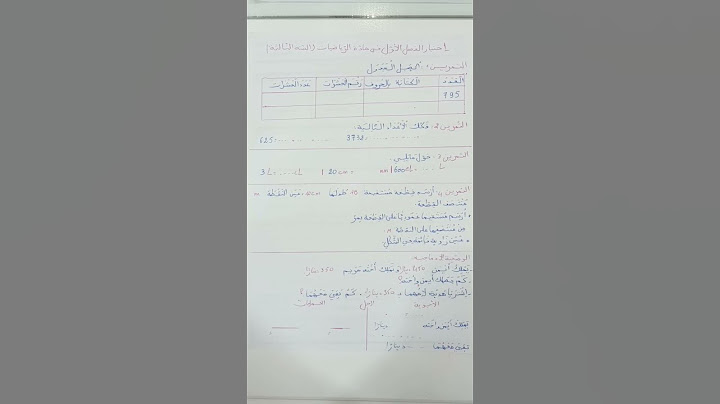 اختبار الفصل الأول في مادة الرياضيات للسنة الثالثة
التمرين 1: أكمل الجدول
العدد الكتابة بالحروف رقم العشرات عدد العشرات
795
التمرين 2: فكك الأعداد التالية:
3732 ............ 625 ............
التمرين 3: حول مايلي:
3L=.....cL | 20cm=.....mm | 600cL=.....L
التمرين 4: أرسم قطعة مستقيمة طولها 10cm، عين النقطة m
منتصف القطعة.
• أرسم مستقيما عموديا على القطعة يمر
من منتصفها على النقطة m
• عين زاوية قائمة في الشكل
الوضعية الادماجية:
يملك أيمن دينارا وتملك أخته مريم 350 دينارا
- كم يملك أيمن وأخته؟
- إشتريا هدية لأمهما بـ 350 دينارا. كم بقي معهما؟
الأجوبة الحل العمليات
يملك أيمن وأخته ..... دينارا
بقي معهما ..... دينارا